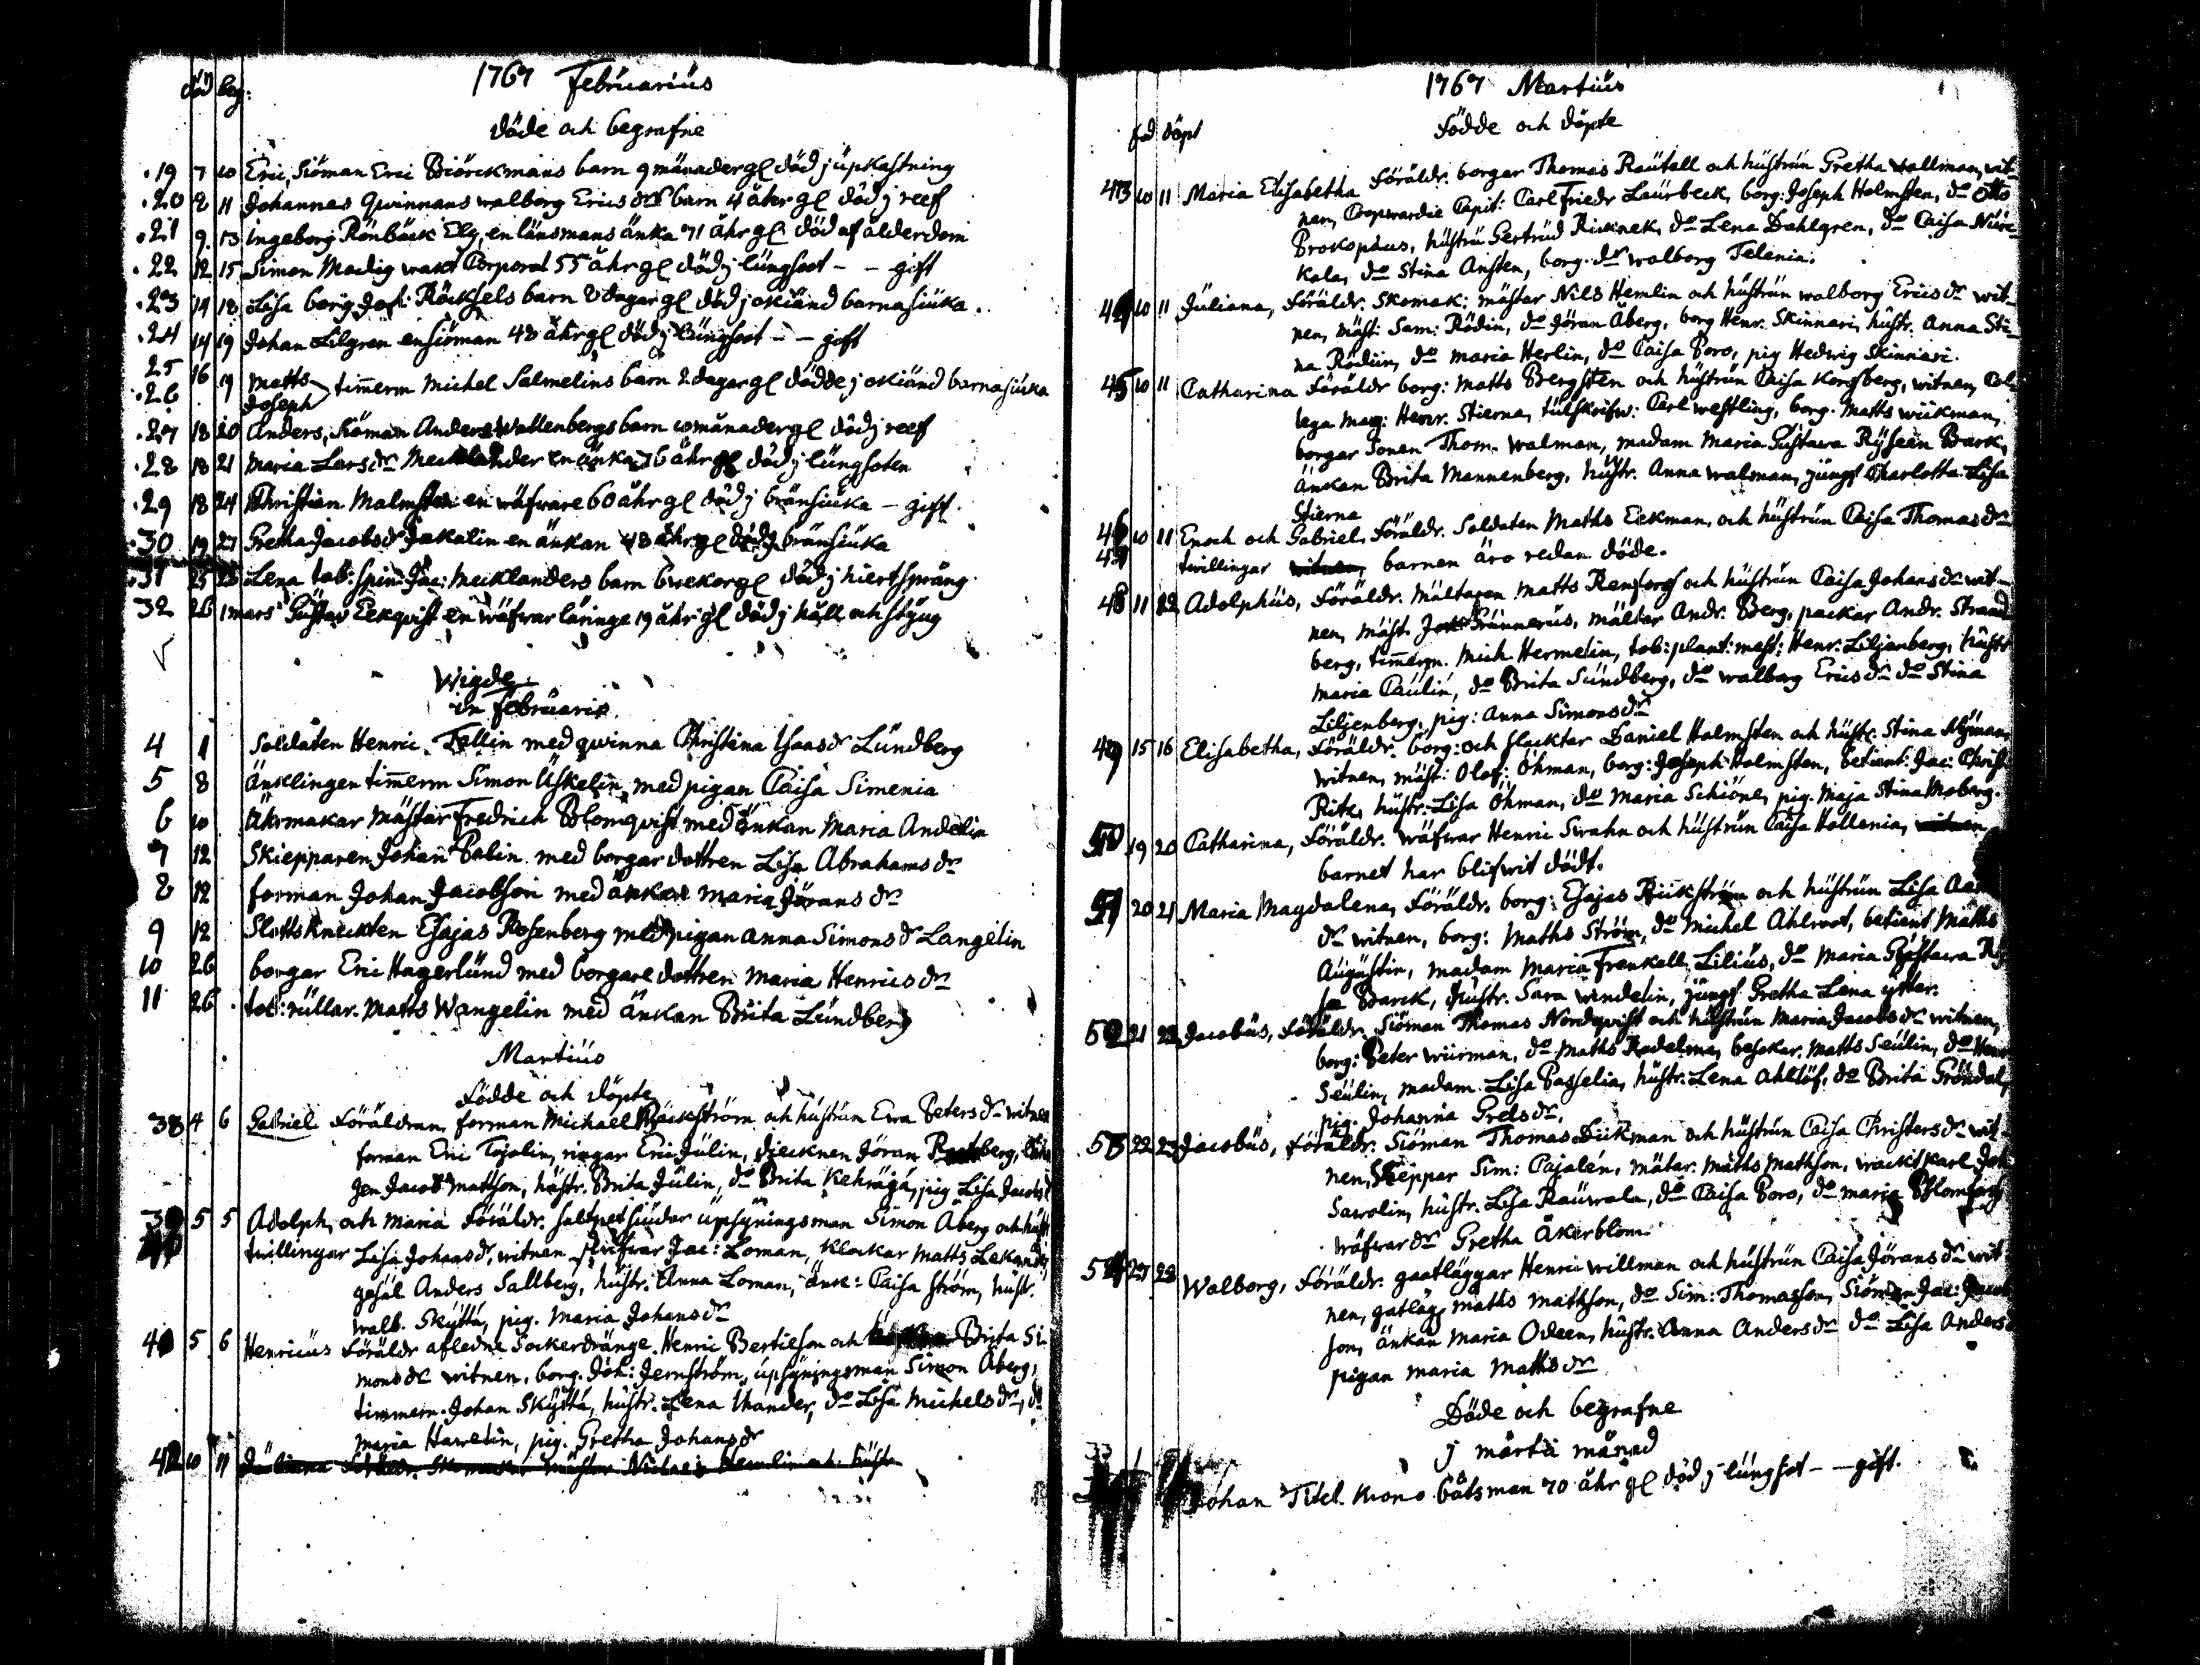 1767 Februarius
död beg:
döde och begrafne
19 7 10 Eric, Siöman Erici Biörckmans barn 9 månader gl död j upkastning
20 8 11 Johannes qwinnans walborg Ericsdr barn 4 åhr gl död j reef
21 9 13 Ingeborg Rönbäck Elg, en länsmans änka 71 åhr gl död af ålderdom
22 12 15 Simon Madig wakt Corporal 55 åhr gl död j lungsoot - - gift
23 14 18 Lisa borg: Joh: Röcksels barn 8 dagar gl död j okiänd barnasiuka.
24 14 19 Johan Lilgren en siöman 48 åhr gl död j lungsoot - - gift
25 16 19 Matts
26 Joseph timerm Michel Salmelins barn 2 dagar gl dödde j okiänd barnasiuka
27 18 20 Anders, Siöman Anders Wallenbergs barn 10 månader gl död j reef
28 18 21 Maria Larsdr Mecklander en änka 76 åhr gl död j lungsoten
29 18 24 Christian Malmsten en wäfware 60 åhr gl död j bränsiuka - gift.
30 19 27 Gretha Jacobsdr Jakalin en änkan 48 åhr gl död j bränsiuka
31 25 28 Lena tob: spin: Jac: Mecklanders barn 6 wekor gl död j hiertspräng
32 26 1 mars Gustav Eekqvist en wäfwar läringe 19 åhr gl död j håll och stÿng
Wigde
in Februario
4 1 Soldaten Henric Tallin med qwinna Christina Isaasdr Lundberg
5 8 Änklingen timerm Simon Uskelin med pigan Caisa Simenia
6 10 Åkrmakar Mästar Fredrich Blomqvist med änkan Maria Andelin
7 12 Skiepparen Johan Palin med borgar dottren Lisa Abrahamsdr
8 12 forman Johan Jacobson med änkan maria Jöransdr
9 12 Slotts Knekten Esajas Rosenberg med pigan anna Simonsdr Langelin
10 26 borgar Eric Hagerlund med borgare dottren Maria Henricsdr
11 26 tob: rullar. Matts Wangelin med änkan Brita Lundberg
Martius
Födde och döpte
38 4 6 Gabriel Föräldran, forman Michael Bäckström och hustrun Ewa Petersdr witnen
forman Eric Tojolin, ringar Eric Julin, diecknen Jöran berg,
gen Jacob Mattson, hustr. Brita Julin, do Brita Kehrägä, pig Lisa Jacobsd
39 5 5 Adolph, och Maria Föräldr. saltpet siudar upsÿningsman Simon Åberg och hust
twillingar Lisa Johansdr, witnen Jac: Loman, klockar Matts
gesäl Anders Sallberg, hustr. Anna Loman, änk: Caisa ström, hustr.
walb. Skÿttä, pig. Maria Johansdr
5 6 Henricus Föräldr afledne Sockerdränge Henric Bertilson och Brita Si-
monsdr witnen, borg. Joh: Jernström, upsÿningsman Simon Åberg,
timmern. Johan Skÿttä, hustr. Lena Thander, do Lisa Michelsdr, do
Maria Hawelin, pig. Gretha Johansdr
42 10 11 Juliana Föräldr. Skomakar mästar Nils Hemlin och hustr
1767 Martius
Födde och döpte
föd döpt
43 10 11 Maria Elisabetha Föräldr. borgar Thomas Rautell och hustrun Gretha wallman, wit-
nen, Coopwardie Capit: Carl Friedr Laurbeck, borg: Joseph Holmsten, do Otto
Prokopæus, hustru Gertrud Ricknek, do Lena Dahlgren, do Caisa
kala, do Stina Ansten, borg. dr walborg Telenia.
44 10 11 Juliana, Föräldr. Skomak: mästar Nils Hemlin och hustrun walborg Ericsdr wit-
nen, mäst: Sam: Rödin, do Jöran Åberg, borg Henr. Skinnari, hustr. Anna Sti-
na Rödin, do maria Herlin, do Caisa Poro, pig Hedwig Skinnari.
45 10 11 Catharina Föräldr borg: Matts Bergsten och hustrun Caisa Korsberg, witnen, Col-
lega Mag: Henr. Stierna, tulskrifw: Carl westling, borg. Matts wiikman,
borgar Sonen Thom. walman, madam Maria Gustawa Bark,
änkan Brita Mannenberg, hustr. Anna walman, jungf Charlotta Lisa
Stierna
46 10 11 Enoch och Gabriel, Föräldr. Soldaten Maths Eekman, och hustrun Caisa Thomasdr
47 twillingar witnen, barnen äro redan döde.
48 11 12 Adolphus, Föräldr. Mältaren Matts Ransfors och hustrun Caisa Johansdr wit-
nen, mäst. Joh: Brunnerus, mältar Andr. Berg, packar Andr. Strand
berg, timmerm. Mich. Hermelin, tob: plant: mest: Henr: Liljenberg, hustr
Maria Paulin, do Brita Sundberg, do walborg Ericsdr do Stina
Liljenberg, pig: Anna Simonsdr
49 15 16 Elisabetha, Föräldr. borg: och slacktar Daniel Holmsten och hustr. Stina Nÿman
witnen, mäst: Olof: Öhman, borg: Joseph Holmsten, betient: Jac: Christ
Ritz, hustr: Lisa Öhman, do Maria Schiöne, pig. Maja Stina Moberg.
50 19 20 Catharina, Föräldr. wäfwar Henric Swahn och hustrun Caisa Hollenia, witnen
barnet har blifwit dödt.
51 20 21 Maria Magdalena, Föräldr. borg: Esajas Rückström och hustrun Lisa
dr witnen, borg: Maths Ström, do Michel Ahlroot, betient Maths
Augustin, madam Maria Frenkell Lilius, do Maria Gustawa
Barck, hustr. Sara wendelin, jungf Gretha Lena ytter.
52 21 22 Jacobus, Föräldr. Siöman Thomas Nordqvist och hustrun Maria Jacobsdr witnen,
borg: Peter wiirman, do Maths Radelma, besökar. Matts Seulin, do
Seulin, madam Lisa Passelia, hustr: Lena Ahllöf, do Brita Gröndal,
pig. Johanna Grelsdr.
53 22 23 Jacobus, Föräldr. Siöman Thomas Diikman och hustrun Caisa Christersdr wit-
nen, Skeppar Sim: Pajalén, mätar. Maths Mathson, wacktkarl Joh
Sawolin, hustr. Lisa Rauwala, do Caisa Poro, do maria
wäfwar dr Gretha Åkerblom
54 27 28 Walborg, Föräldr: gaatläggar Henric willman och hustrun Caisa Jöransdr wit-
nen, gatläg. maths mathson, do Sim: Thomasson, Siöman Jac: Jacob
son, änkan Maria Odeen, hustr. Anna Andersdr do Lisa Anders
pigan maria Mathsdr
Döde och begrafne
j martii månad
Johan Titel. krono båtsman 70 åhr gl död j lungsot - - gift.